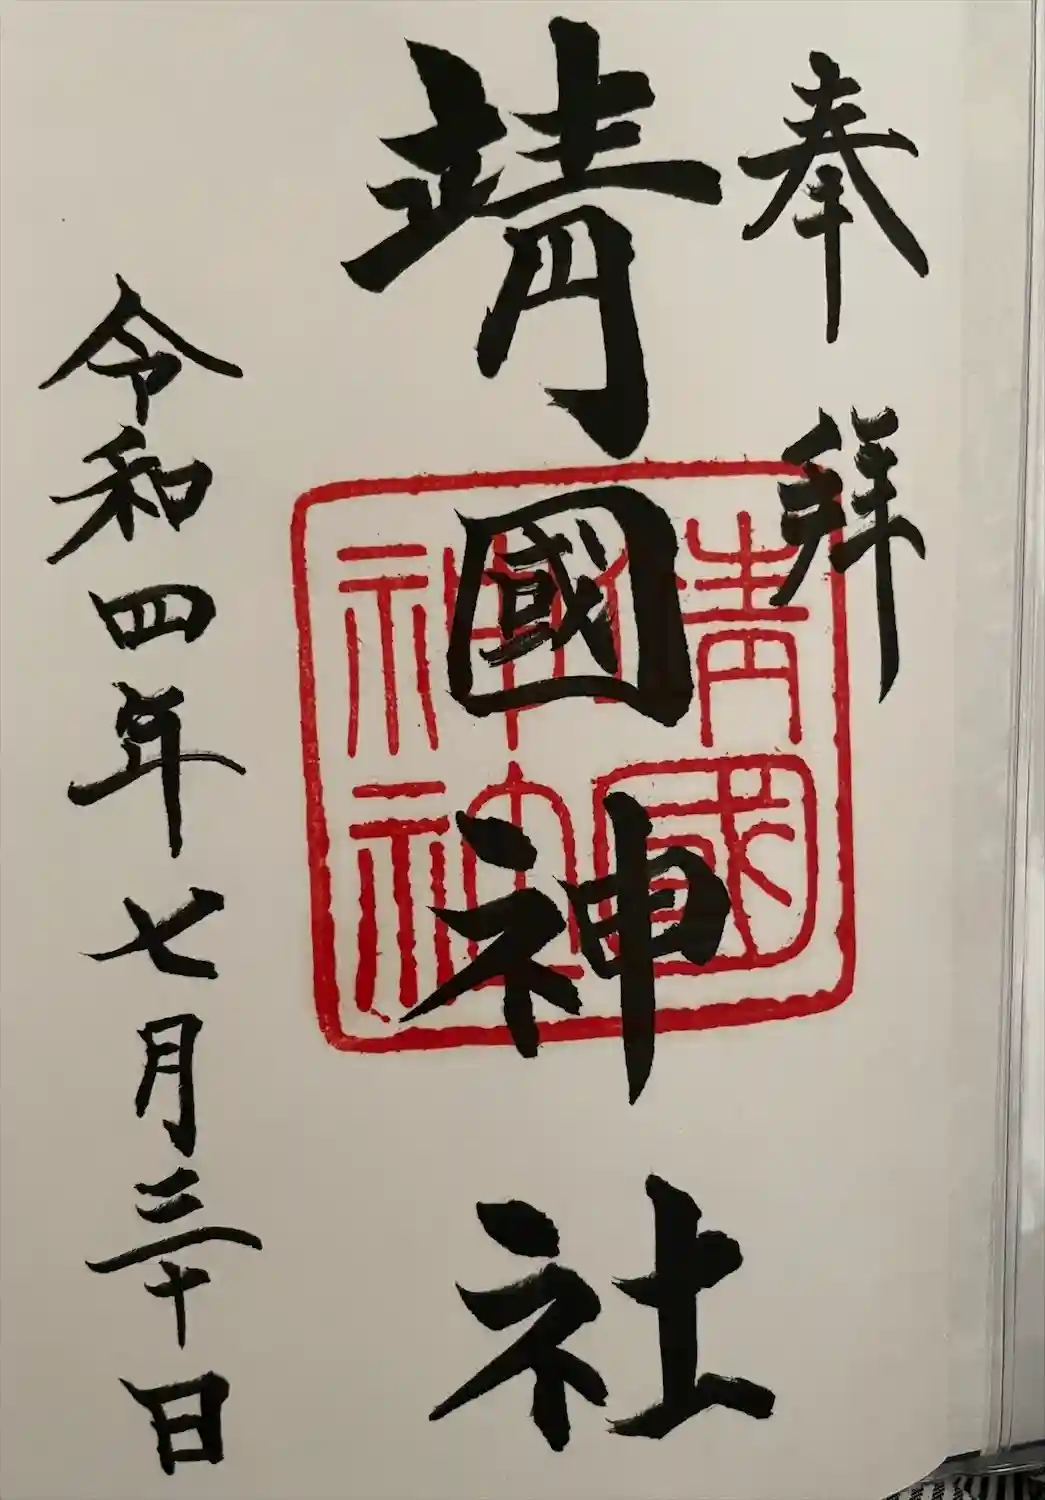 奉拜
靖國神社
靖國
神社
令和四年七月三十日